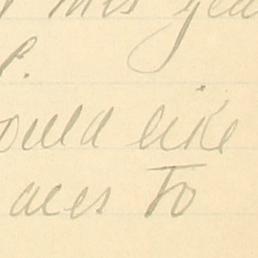 this yea
P.
ould like
aces to